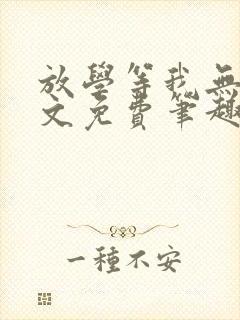 放學等我無
文免費筆趣
一種不安